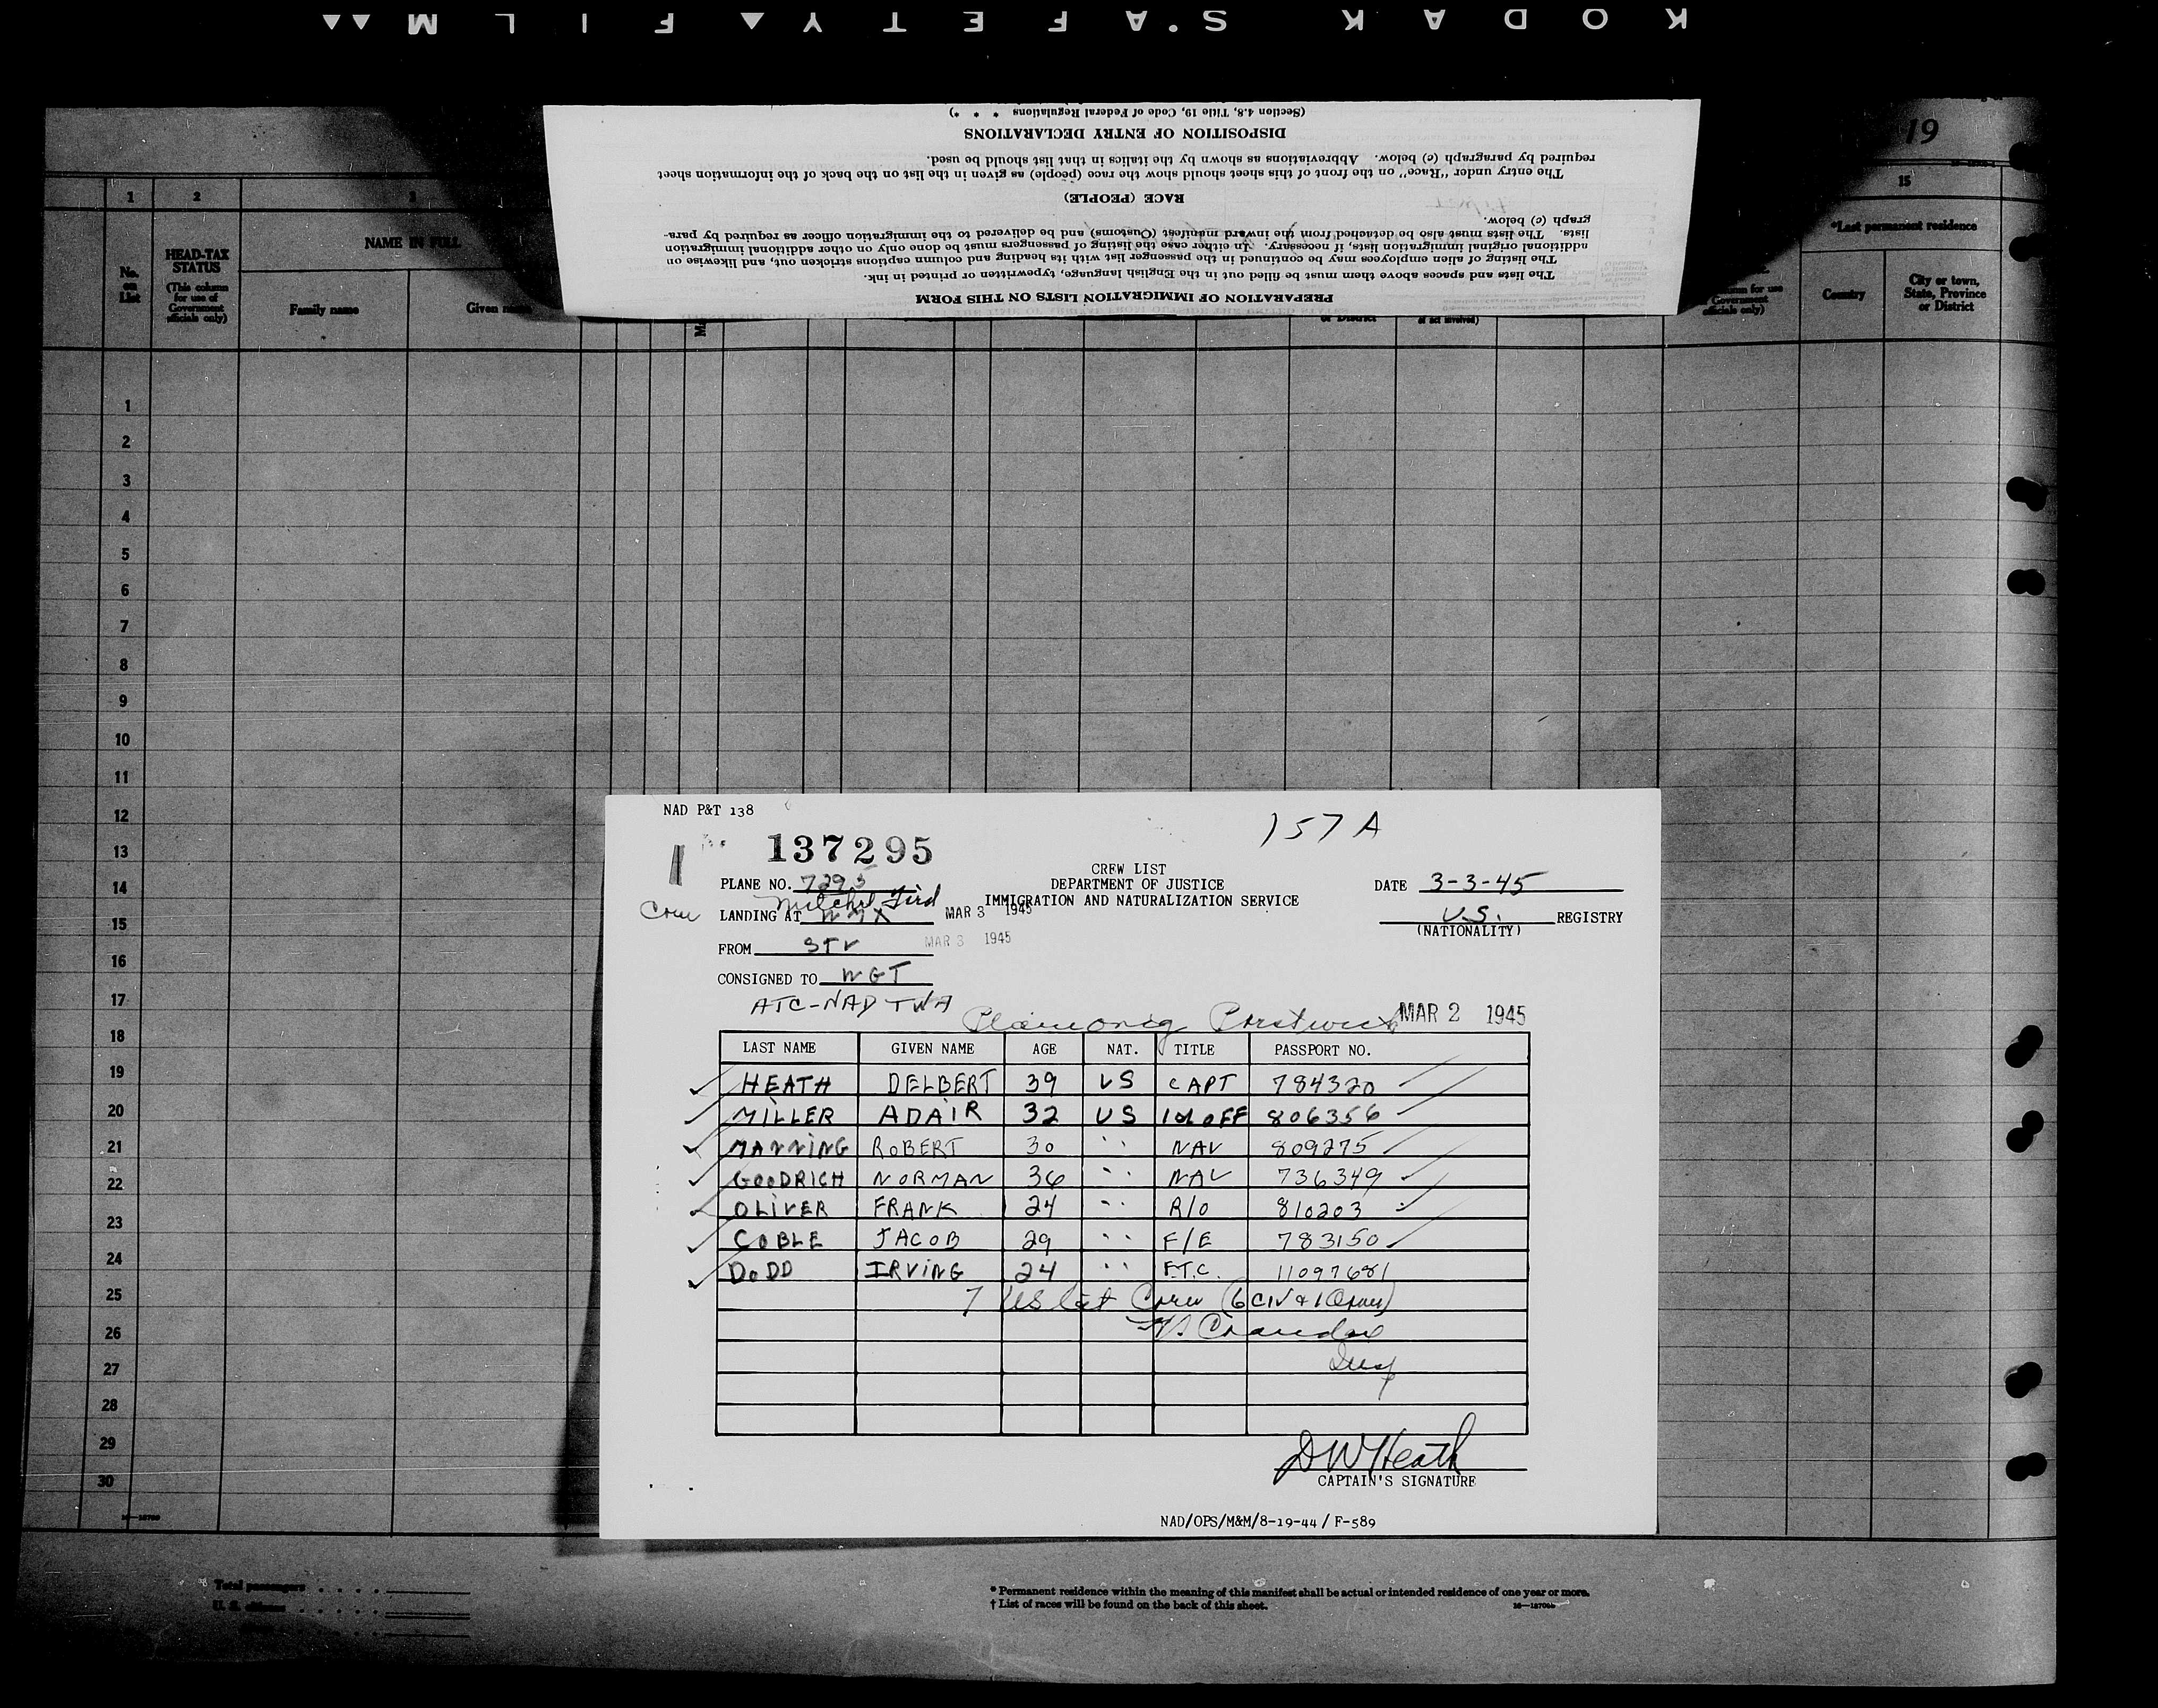 KODAK SAFETY FILM
(Section 4.8, Title 19, Code of Federal Regulations * * *)
DISPOSITION OF ENTRY DECLARATIONS
required by paragraph (c) below. Abbreviations as shown by the italics in that list should be used.
The entry under "Race" on the front of this sheet should show the race (people) as given in the list on the back of the information sheet
RACE (PEOPLE)
graph (c) below.
lists. The lists must also be detached from the inward manifest (Customs) and be delivered to the immigration officer as required by para-
additional original immigration lists, if necessary. In either case the listing of passengers must be done only on other additional immigration
The listing of alien employees may be continued in the passenger list with its heading and column captions stricken out, and likewise on
The lists and spaces above them must be filled out in the English language, typewritten or printed in ink.
PREPARATION OF IMMIGRATION LISTS ON THIS FORM
19
1 2 3 15
No. on List
HEAD-TAX STATUS
(This column for use of Government officials only)
NAME IN FULL
Family name
Given name
or District
of act involved)
for use
Government
officials only)
*Last permanent residence
Country
City or town, State, Province or District
1
2
3
4
5
6
7
8
9
10
11
12
13
14
15
16
17
18
19
20
21
22
23
24
25
26
27
28
29
30
NAD P&T 138
157A
137295
CREW LIST
DEPARTMENT OF JUSTICE
IMMIGRATION AND NATURALIZATION SERVICE
PLANE NO. 7295
DATE 3-3-45
Mitchel Field
Crew
LANDING AT MAR 3 1945
U.S. REGISTRY
(NATIONALITY)
FROM STV MAR 3 1945
CONSIGNED TO WGT
ATC-NAD TWA
Prestwick MAR 2 1945
LAST NAME GIVEN NAME AGE NAT. TITLE PASSPORT NO.
HEATH DELBERT 39 US CAPT 784320
MILLER ADAIR 32 US 1st OFF 806356
MANNING ROBERT 30 " NAV 809275
GOODRICH NORMAN 36 " NAV 736349
OLIVER FRANK 24 " R/O 810203
COBLE JACOB 29 " F/E 783150
DODD IRVING 24 " F.T.C. 11097681
7 US Cit Crew (6 CIV & 1 Army)
DW Heath
CAPTAIN'S SIGNATURE
NAD/OPS/M&M/8-19-44 / F-589
Total passengers
U. S. citizens
* Permanent residence within the meaning of this manifest shall be actual or intended residence of one year or more.
† List of races will be found on the back of this sheet.